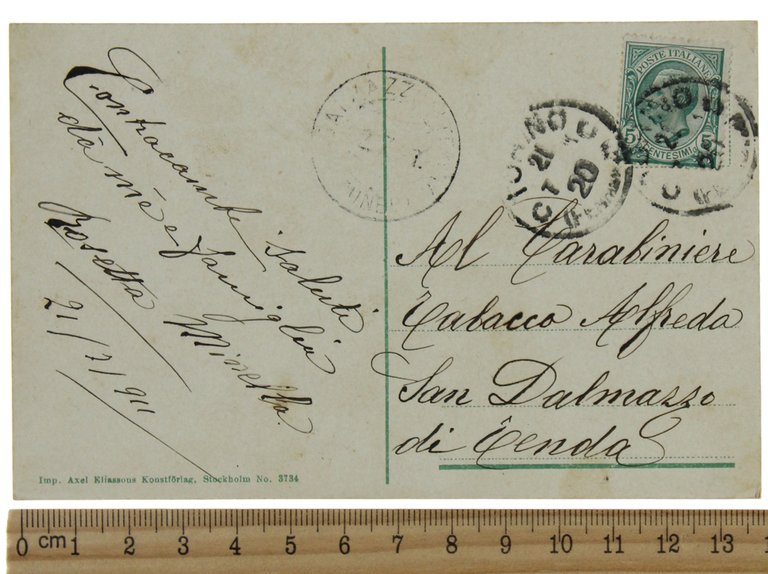 Contracambi saluti
da me e famiglia
Rosetta Minetta
21/7/911
Imp. Axel Eliassons Konstförlag, Stockholm No. 3734
POSTE ITALIANE
5 CENTESIMI
TORINO
21
7
20
Al Carabiniere
Tabacco Alfredo
San Dalmazzo
di Tenda
0 cm 1 2 3 4 5 6 7 8 9 10 11 12 13